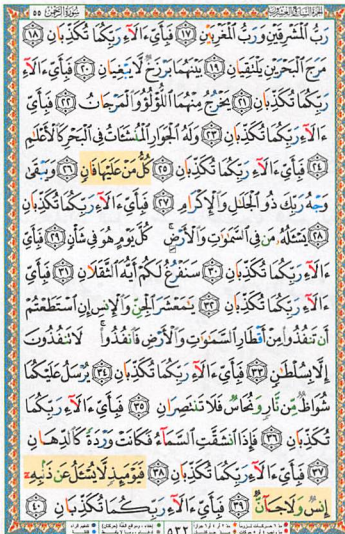 سُورَةُ الرَّحْمَٰن ٥٥
رَبُّ الْمَشْرِقَيْنِ وَرَبُّ الْمَغْرِبَيْنِ ١٧ فَبِأَيِّ ءَالَآءِ رَبِّكُمَا تُكَذِّبَانِ ١٨
مَرَجَ الْبَحْرَيْنِ يَلْتَقِيَانِ ١٩ بَيْنَهُمَا بَرْزَخٌ لَّا يَبْغِيَانِ ٢٠ فَبِأَيِّ ءَالَآءِ
رَبِّكُمَا تُكَذِّبَانِ ٢١ يَخْرُجُ مِنْهُمَا اللُّؤْلُؤُ وَالْمَرْجَانُ ٢٢ فَبِأَيِّ
ءَالَآءِ رَبِّكُمَا تُكَذِّبَانِ ٢٣ وَلَهُ الْجَوَارِ الْمُنشَـَٔاتُ فِي الْبَحْرِ كَالْأَعْلَٰمِ
٢٤ فَبِأَيِّ ءَالَآءِ رَبِّكُمَا تُكَذِّبَانِ ٢٥ كُلُّ مَنْ عَلَيْهَا فَانٍ ٢٦ وَيَبْقَىٰ
وَجْهُ رَبِّكَ ذُو الْجَلَٰلِ وَالْإِكْرَامِ ٢٧ فَبِأَيِّ ءَالَآءِ رَبِّكُمَا تُكَذِّبَانِ
٢٨ يَسْـَٔلُهُ مَن فِي السَّمَٰوَٰتِ وَالْأَرْضِ ۚ كُلَّ يَوْمٍ هُوَ فِي شَأْنٍ ٢٩ فَبِأَيِّ
ءَالَآءِ رَبِّكُمَا تُكَذِّبَانِ ٣٠ سَنَفْرُغُ لَكُمْ أَيُّهَ الثَّقَلَانِ ٣١ فَبِأَيِّ
ءَالَآءِ رَبِّكُمَا تُكَذِّبَانِ ٣٢ يَٰمَعْشَرَ الْجِنِّ وَالْإِنسِ إِنِ اسْتَطَعْتُمْ
أَن تَنفُذُوا مِنْ أَقْطَارِ السَّمَٰوَٰتِ وَالْأَرْضِ فَانفُذُوا ۚ لَا تَنفُذُونَ
إِلَّا بِسُلْطَٰنٍ ٣٣ فَبِأَيِّ ءَالَآءِ رَبِّكُمَا تُكَذِّبَانِ ٣٤ يُرْسَلُ عَلَيْكُمَا
شُوَاظٌ مِّن نَّارٍ وَنُحَاسٌ فَلَا تَنتَصِرَانِ ٣٥ فَبِأَيِّ ءَالَآءِ رَبِّكُمَا
تُكَذِّبَانِ ٣٦ فَإِذَا انشَقَّتِ السَّمَآءُ فَكَانَتْ وَرْدَةً كَالدِّهَانِ
٣٧ فَبِأَيِّ ءَالَآءِ رَبِّكُمَا تُكَذِّبَانِ ٣٨ فَيَوْمَئِذٍ لَّا يُسْـَٔلُ عَن ذَنبِهِ
إِنسٌ وَلَا جَآنٌّ ٣٩ فَبِأَيِّ ءَالَآءِ رَبِّكُمَا تُكَذِّبَانِ ٤٠
٥٣٢